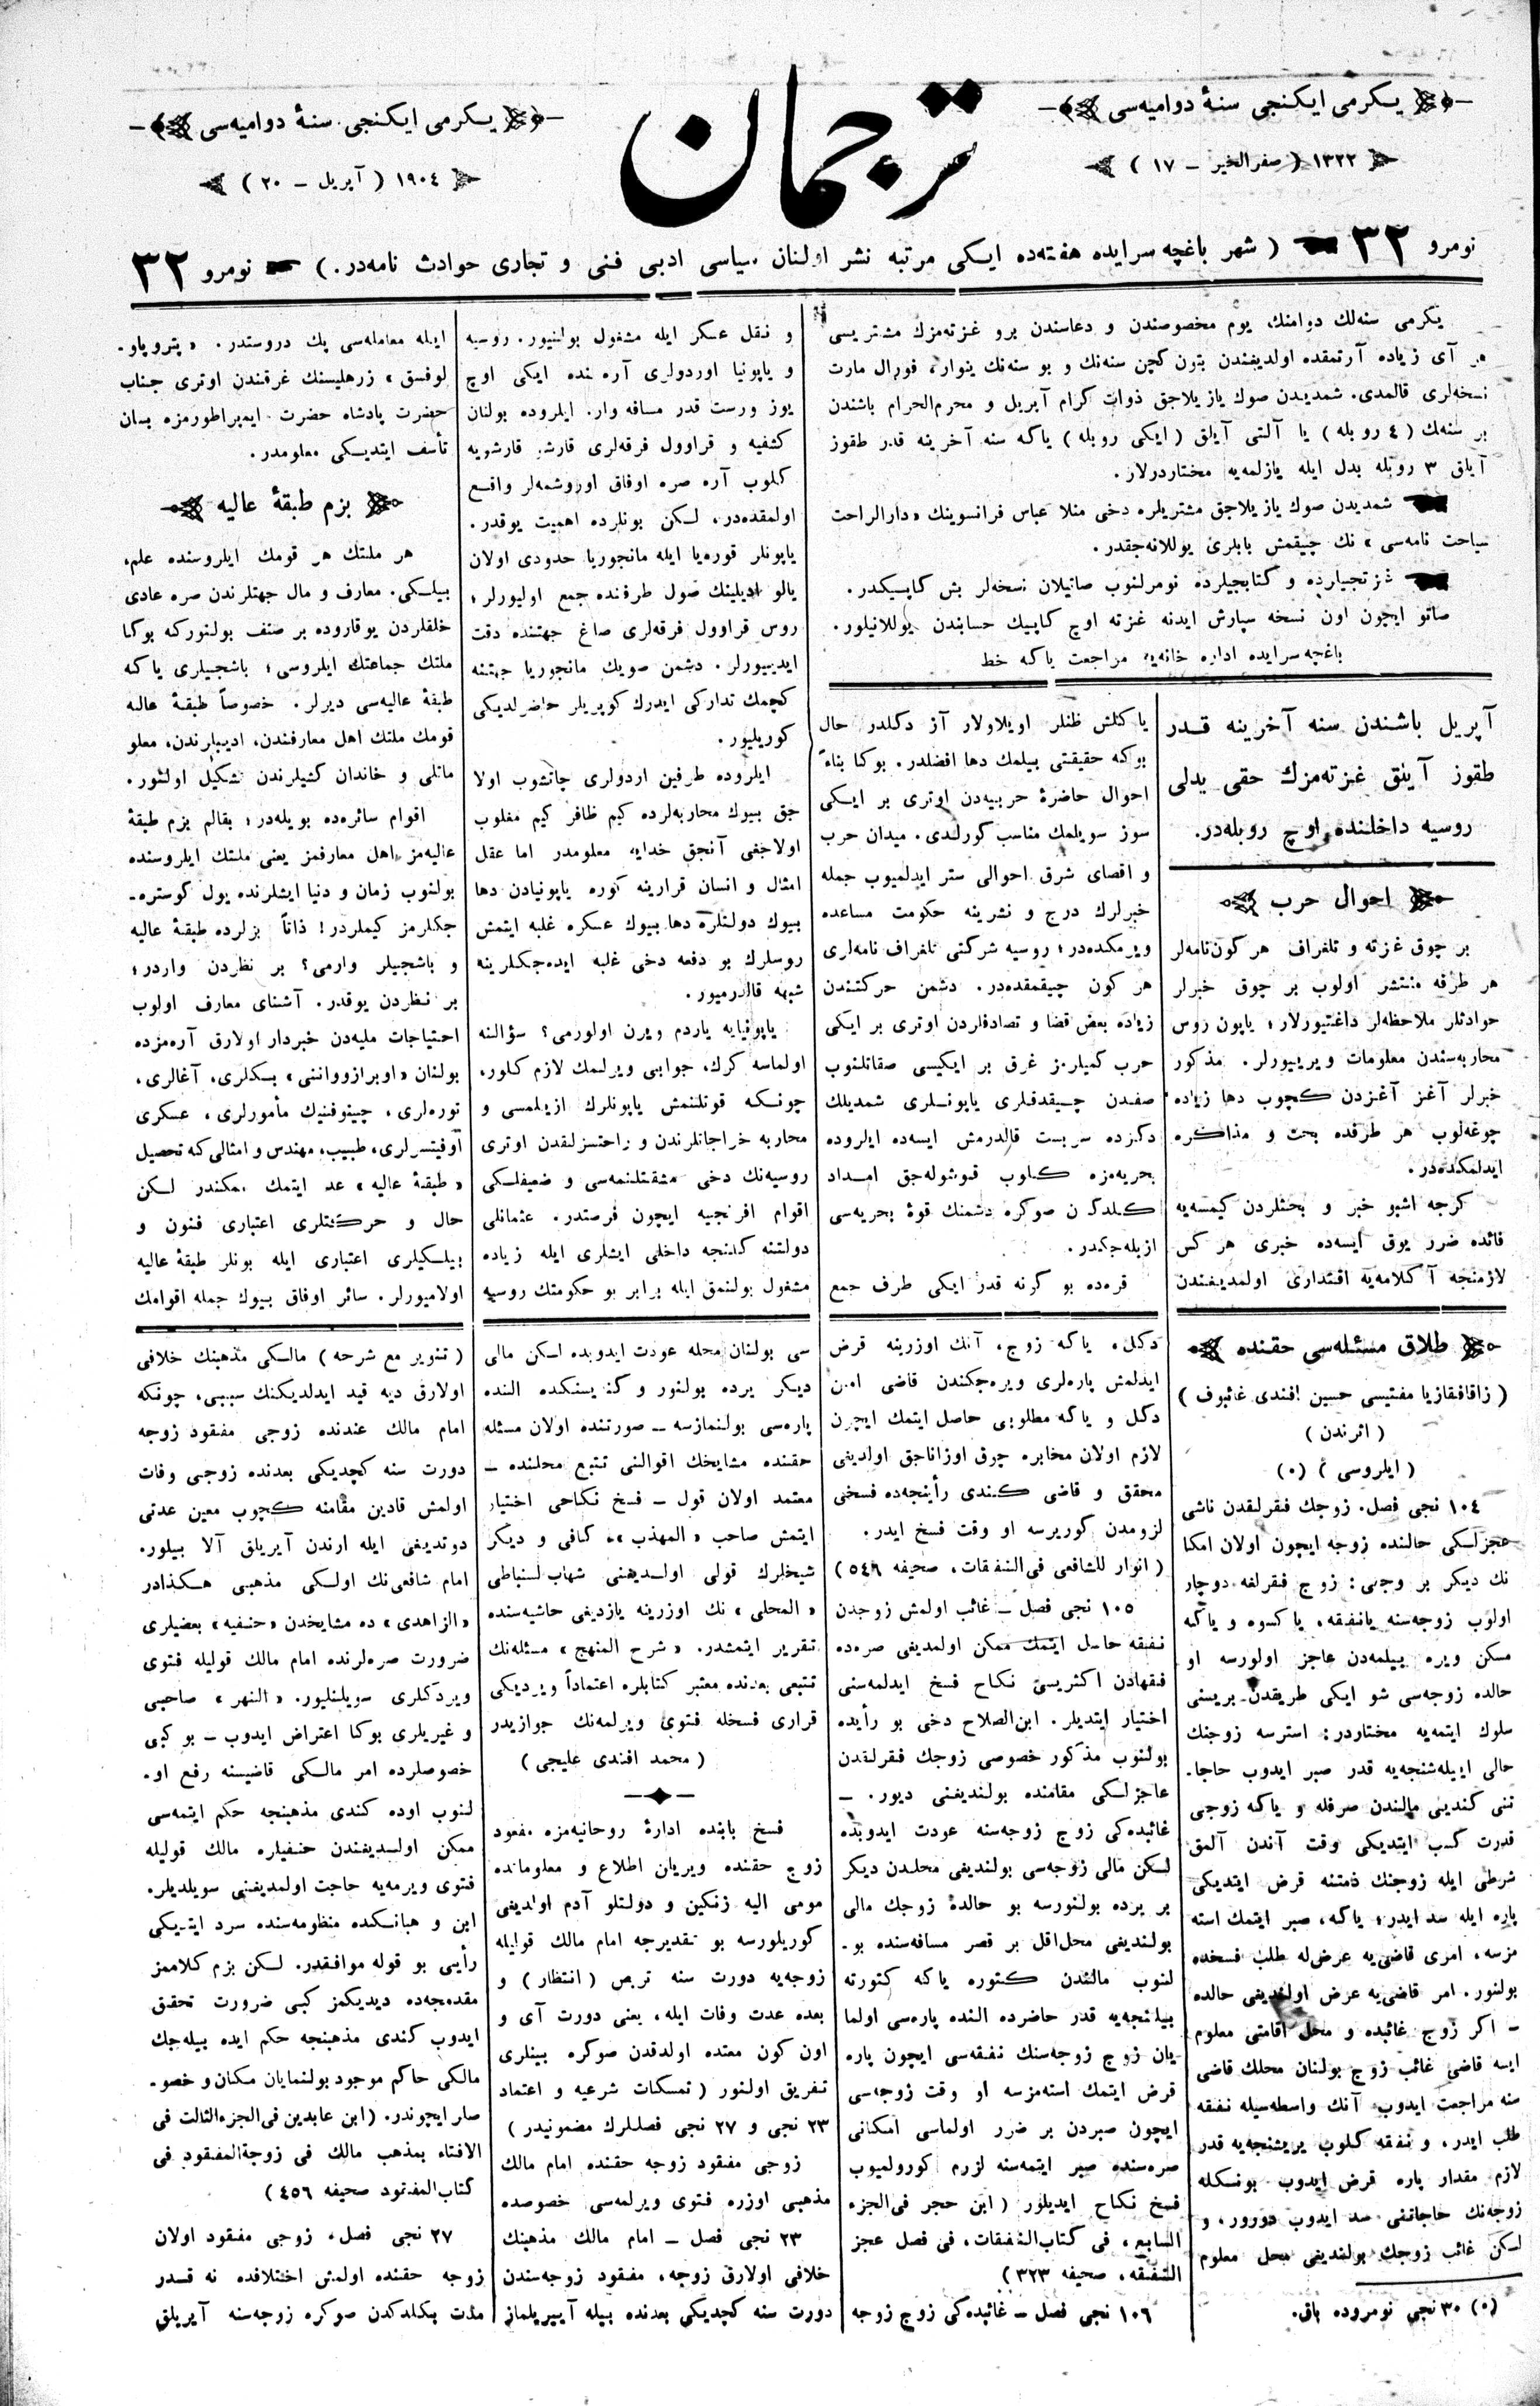 یكرمی ایكنجی سنهٔ دوامیه‌سی
۱۳۲۲ ( صفرالخیر – ۱۷ )
ترجمان
یكرمی ایكنجی سنهٔ دوامیه‌سی
۱۹۰٤ ( آپریل – ۲۰ )
نومرو ۳۲ ( شهر باغچه سرایده هفته‌ده ایكی مرتبه نشر اولنان سیاسی ادبی فنی و تجاری حوادث نامه‌در. ) نومرو ۳۲
یكرمی سنه‌لك دوامنك، یوم مخصوصندن و دعاسندن برو غزته‌مزك مشتریسی
هر آی زیاده آرتمقده اولدیغندن بتون كچن سنه‌نك و بو سنه‌نك ینوار، فورال مارت
نسخه‌لری قالمدی. شمدیدن صوك یازیلاجق ذوات كرام آپریل و محرم‌الحرام باشندن
بر سنه‌لك ( ٤ روبله ) یا آلتی آیلق ( ایكی روبله ) یاكه سنه آخرینه قدر طقوز
آیلق ۳ روبله بدل ایله یازلمه‌یه مختاردرلار.
شمدیدن صوك یازیلاجق مشتریلره دخی منلا عباس فرانسوینك « دارالراحت
سیاحت نامه‌سی » نك چیقمش بابلری یوللانه‌جقدر.
غزتجیلرده و كتابجیلرده نومرلنوب صاتیلان نسخه‌لر بش كاپیكدر.
صاتو ایچون اون نسخه سپارش ایدنه غزته اوچ كاپیك حسابندن یوللانیلور.
باغچه سرایده اداره خانه‌یه مراجعت یاكه خط
آپریل باشندن سنه آخرینه قدر
طقوز آیلق غزته‌مزك حقی یدلی
روسیه داخلنده اوچ روبله‌در.
احوال حرب
بر چوق غزته و تلغراف هر كون‌نامه‌لر
هر طرفه منتشر اولوب بر چوق خبرلر
حوادثلر ملاحظه‌لر داغتیورلار؛ یاپون روس
محاربه‌سندن معلومات ویرییورلر. مذكور
خبرلر آغز آغزدن كچوب دها زیاده
چوغه‌لوب هر طرفده بحث و مذاكره
ایدلمكده‌در.
كرچه اشبو خبر و بحثلردن كیمسه‌یه
فائده ضرر یوق ایسه‌ده خبری هر كس
لازمنجه آكلامه‌یه اقتداری اولمدیغندن
یاكلش ظنلر اویلاولار آز دكلدر حال
بوكه حقیقتی بیلمك دها افضلدر. بوكا بناءً
احوال حاضرهٔ حربیه‌دن اوتری بر ایكی
سوز سویلمك مناسب كورلدی. میدان حرب
و اقصای شرق احوالی ستر ایدلمیوب جمله
خبرلرك درج و نشرینه حكومت مساعده
ویرمكده‌در؛ روسیه شركتی تلغراف نامه‌لری
هر كون چیقمقده‌در. دشمن حركتندن
زیاده بعض قضا و تصادفلردن اوتری بر ایكی
حرب كمیلرمز غرق بر ایكیسی صقاتلنوب
صفدن چیقدقلری یاپونلری شمدیلك
دكزده سربست قالدرمش ایسه‌ده ایلروده
بحریه‌مزه كلوب قوشوله‌جق امداد
كلدكن صوكره دشمنك قوهٔ بحریه‌سی
ازیله‌جكدر.
قره‌ده بو كونه قدر ایكی طرف جمع
و نقل عسكر ایله مشغول بولنیور. روسیه
و یاپونیا اوردولری آره‌سنده ایكی اوچ
یوز ورست قدر مسافه وار. ایلروده بولنان
كشفیه و قراوول فرقه‌لری قارشو قارشویه
كلوب آره صره اوفاق اوروشمه‌لر واقع
اولمقده‌در، لكن بونلرده اهمیت یوقدر.
یاپونلر قوره‌یا ایله مانجوریا حدودی اولان
یالو ایدیلینك صول طرفنده جمع اولیورلر؛
روس قراوول فرقه‌لری صاغ جهتنده دقت
ایدییورلر. دشمن صویك مانجوریا جهتنه
كچمك تداركی ایدرك كوپریلر حاضرلدیكی
كوریلیور.
ایلروده طرفین اردولری چاتشوب اولا
جق بیوك محاربه‌لرده كیم ظافر كیم مغلوب
اولاجغی آنجق خدایه معلومدر اما عقل
امثال و انسان قرارینه كوره یاپونیادن دها
بیوك دولتلره دها بیوك عسكره غلبه ایتمش
روسلرك بو دفعه دخی غلبه ایده‌جكلرینه
شبهه قالدرمیور.
یاپونیایه یاردم ویرن اولورمی؟ سؤالنه
اولماسه كرك، جوابی ویرلمك لازم كلور،
چونكه قوتلنمش یاپونلرك ازیلمسی و
محاربه خراجاتلرندن و راحتسزلقدن اوتری
روسیه‌نك دخی مشقتلنمه‌سی و ضعیفلكی
اقوام افرنجیه ایچون فرصتدر. عثمانلی
دولتنه كلنجه داخلی ایشلری ایله زیاده
مشغول بولنمق ایله برابر بو حكومتك روسیه
ایله معامله‌سی پك دروستدر. « پتروپاو-
لوفسق » زرهلیسنك غرقندن اوتری جناب
حضرت پادشاه حضرت ایمپراطورمزه بیان
تأسف ایتدیكی معلومدر.
بزم طبقهٔ عالیه
هر ملتك هر قومك ایلروسنده علم،
بیلكی، معارف و مال جهتلرندن صره عادی
خلقلردن یوقاروده بر صنف بولنوركه بوكا
ملتك جماعتك ایلروسی؛ باشجیلری یاكه
طبقهٔ عالیه‌سی دیرلر. خصوصاً طبقهٔ عالیه
قومك ملتك اهل معارفندن، ادیبلرندن، معلو
ماتلی و خاندان كشیلرندن تشكیل اولنور.
اقوام سائره‌ده بویله‌در؛ بقالم بزم طبقهٔ
عالیه‌مز اهل معارفمز یعنی ملتك ایلروسنده
بولنوب زمان و دنیا ایشلرنده یول كوستره-
جكلرمز كیملردر! ذاتاً بزلرده طبقهٔ عالیه
و باشجیلر وارمی؟ بر نظردن واردر؛
بر نظردن یوقدر. آشنای معارف اولوب
احتیاجات ملیه‌دن خبردار اولارق آره‌مزده
بولنان « اوبرازووانتی » بكلری، آغالری،
توره‌لری، چینوفنیك مأمورلری، عسكری
اوفیتسرلری، طبیب، مهندس و امثالی كه تحصیل
« طبقهٔ عالیه » عد ایتمك ممكندر لكن
حال و حركتلری اعتباری فنون و
بیلكیلری اعتباری ایله بونلر طبقهٔ عالیه
اولامیورلر. سائر اوفاق بیوك جمله اقوامك
طلاق مسئله‌سی حقنده
( زاقافقازیا مفتیسی حسین افندی غائبوف )
( اثرندن )
( ایلروسی ) (۰)
۱۰٤ نجی فصل. زوجك فقرلقدن ناشی
عجزلكی حالنده زوجه ایچون اولان امكا
نك دیكر بر وجهی: زوج فقرلغه دوچار
اولوب زوجه‌سنه یانفقه، یا كسوه و یاكه
مسكن ویره بیلمه‌دن عاجز اولورسه او
حالده زوجه‌سی شو ایكی طریقدن بریسنی
سلوك ایتمه‌یه مختاردر: استرسه زوجنك
حالی اییله‌شنجه‌یه قدر صبر ایدوب حاجا-
تنی كندینی مالندن صرفله و یاكه زوجی
قدرت كسب ایتدیكی وقت آندن آلمق
شرطی ایله زوجنك ذمتنه قرض ایتدیكی
پاره ایله سد ایدر؛ یاكه، صبر ایتمك استه
مزسه، امری قاضی‌یه عرض‌له طلب فسخده
بولنور. امر قاضی‌یه عرض اولندیغی حالده
– اكر زوج غائبده و محل اقامتی معلوم
ایسه قاضی غائب زوج بولنان محلك قاضی
سنه مراجعت ایدوب آنك واسطه‌سیله نفقه
طلب ایدر، و نفقه كلوب یریشنجه‌یه قدر
لازم مقدار پاره قرض ایدوب بونكله
زوجه‌نك حاجاتنی سد ایدوب دورور، و
لكن غائب زوجك بولندیغی محل معلوم
(۰) ۳۰ نجی نومروده باق.
دكل، یاكه زوج، آنك اوزرینه قرض
ایدلمش پاره‌لری ویره‌جكندن قاضی امین
دكل و یاكه مطلوبی حاصل ایتمك ایچون
لازم اولان مخابره چوق اوزاناجق اولدیغی
محقق و قاضی كندی رأینجه‌ده فسخی
لزومدن كوریرسه او وقت فسخ ایدر.
( انوار للشافعی فی‌النفقات، صحیفه ٥٤٦ )
۱۰٥ نجی فصل – غائب اولمش زوجدن
نفقه حاصل ایتمك ممكن اولمدیغی صره‌ده
فقهادن اكثریسی نكاح فسخ ایدلمه‌سنی
اختیار ایتدیلر. ابن‌الصلاح دخی بو رأیده
بولنوب مذكور خصوصی زوجك فقرلقدن
عاجزلكی مقامنده بولندیغنی دیور. –
غائبده‌كی زوج زوجه‌سنه عودت ایدوبده
لكن مالی زوجه‌سی بولندیغی محلدن دیكر
بر یرده بولنورسه بو حالده زوجك مالی
بولندیغی محل‌اقل بر قصر مسافه‌سنده بو-
لنوب مالندن كتوره یاكه كتورته
بیلنجه‌یه قدر حاضرده النده پاره‌سی اولما
یان زوج زوجه‌سنك نفقه‌سی ایچون پاره
قرض ایتمك استه‌مزسه او وقت زوجه‌سی
ایچون صبردن بر ضرر اولماسی امكانی
صره‌سنده صبر ایتمه‌سنه لزوم كورولمیوب
فسخ نكاح ایدیلور ( ابن حجر فی‌الجزء
السابع، فی كتاب‌النفقات، فی فصل عجز
النفقه، صحیفه ۳۲۳ )
۱۰٦ نجی فصل – غائبده‌كی زوج زوجه
سی بولنان محله عودت ایدوبده لكن مالی
دیكر یرده بولنور و كندیسنكده النده
پاره‌سی بولنمازسه – صورتنده اولان مسئله
حقنده مشایخك اقوالنی تتبع محلنده –
معتمد اولان قول – فسخ نكاحی اختیار
ایتمش صاحب « المهذب »، كافی و دیكر
شیخلرك قولی اولدیغنی شهاب‌لسنباطی
« المحلی » نك اوزرینه یازدیغی حاشیه‌سنده
تقریر ایتمشدر. « شرح المنهج » مسئله‌نك
تتبعی بعدنده معتبر كتابلره اعتماداً ویردیكی
قراری فسخله فتوی ویرلمه‌نك جوازیدر
( محمد افندی علیجی )
فسخ بابنده ادارهٔ روحانیه‌مزه مفقود
زوج حقنده ویریان اطلاع و معلوماتده
مومی الیه زنكین و دولتلو آدم اولدیغی
كوریلورسه بو تقدیرجه امام مالك قولیله
زوجه‌یه دورت سنه تربص ( انتظار ) و
بعده عدت وفات ایله، یعنی دورت آی و
اون كون معتده اولدقدن صوكره بینلری
تفریق اولنور ( تمسكات شرعیه و اعتماد
۲۳ نجی و ۲۷ نجی فصللرك مضمونیدر )
زوجی مفقود زوجه حقنده امام مالك
مذهبی اوزره فتوی ویرلمه‌سی خصوصده
۲۳ نجی فصل – امام مالك مذهبنك
خلافی اولارق زوجه، مفقود زوجه‌سندن
دورت سنه كچدیكی بعدنده بیله آییریلماز
( تنویر مع شرحه ) مالكی مذهبنك خلافی
اولارق دیه قید ایدلدیكنك سببی، چونكه
امام مالك عندنده زوجی مفقود زوجه
دورت سنه كچدیكی بعدنده زوجی وفات
اولمش قادین مقامنه كچوب معین عدتی
دوتدیغی ایله ارندن آیریلق آلا بیلور.
امام شافعی‌نك اولكی مذهبی هكذادر
« الزاهدی » ده مشایخدن « حنفیه » بعضیلری
ضرورت صره‌لرنده امام مالك قولیله فتوی
ویردكلری سویلنلیور. « النهر » صاحبی
و غیریلری بوكا اعتراض ایدوب – بو كبی
خصوصلرده امر مالكی قاضیسنه رفع او-
لنوب اوده كندی مذهبنجه حكم ایتمه‌سی
ممكن اولدیغندن حنفیلره مالك قولیله
فتوی ویرمه‌یه حاجت اولمدیغنی سویلدیلر.
ابن و هبانكده منظومه‌سنده سرد ایتدیكی
رأیی بو قوله موافقدر. لكن بزم كلاممز
مقدمجه‌ده دیدیكمز كبی ضرورت تحقق
ایدوب كندی مذهبنجه حكم ایده بیله‌جك
مالكی حاكم موجود بولنمایان مكان و خصو-
صلر ایچوندر. (ابن عابدین فی‌الجزءالثالث فی
الافتاء بمذهب مالك فی زوجةالمفقود فی
كتاب‌المفقود صحیفه ٤٥٦)
۲۷ نجی فصل، زوجی مفقود اولان
زوجه حقنده اولمش اختلافده نه قدر
مدت بكلدكدن صوكره زوجه‌سنه آیریلق